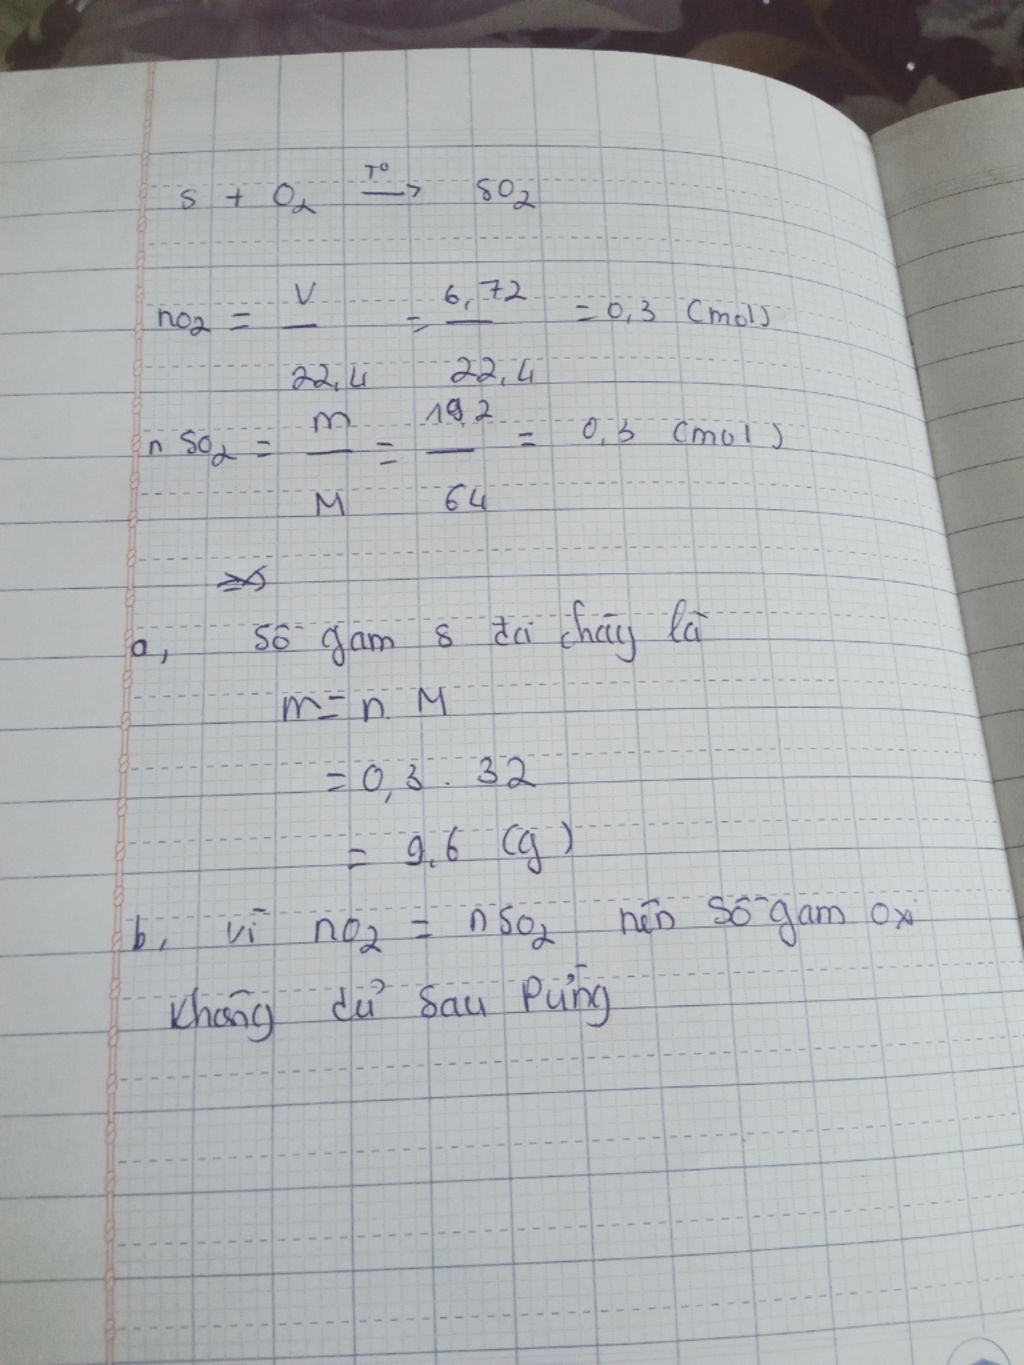 S + O2 T° → SO2
nO2 = V / 22,4 = 6,72 / 22,4 = 0,3 (mol)
n SO2 = m / M = 19,2 / 64 = 0,3 (mol)
a, Số gam S đã cháy là
m = n. M
= 0,3 . 32
= 9,6 (g)
b, vì nO2 = nSO2 nên số gam oxi
không dư sau Pứng